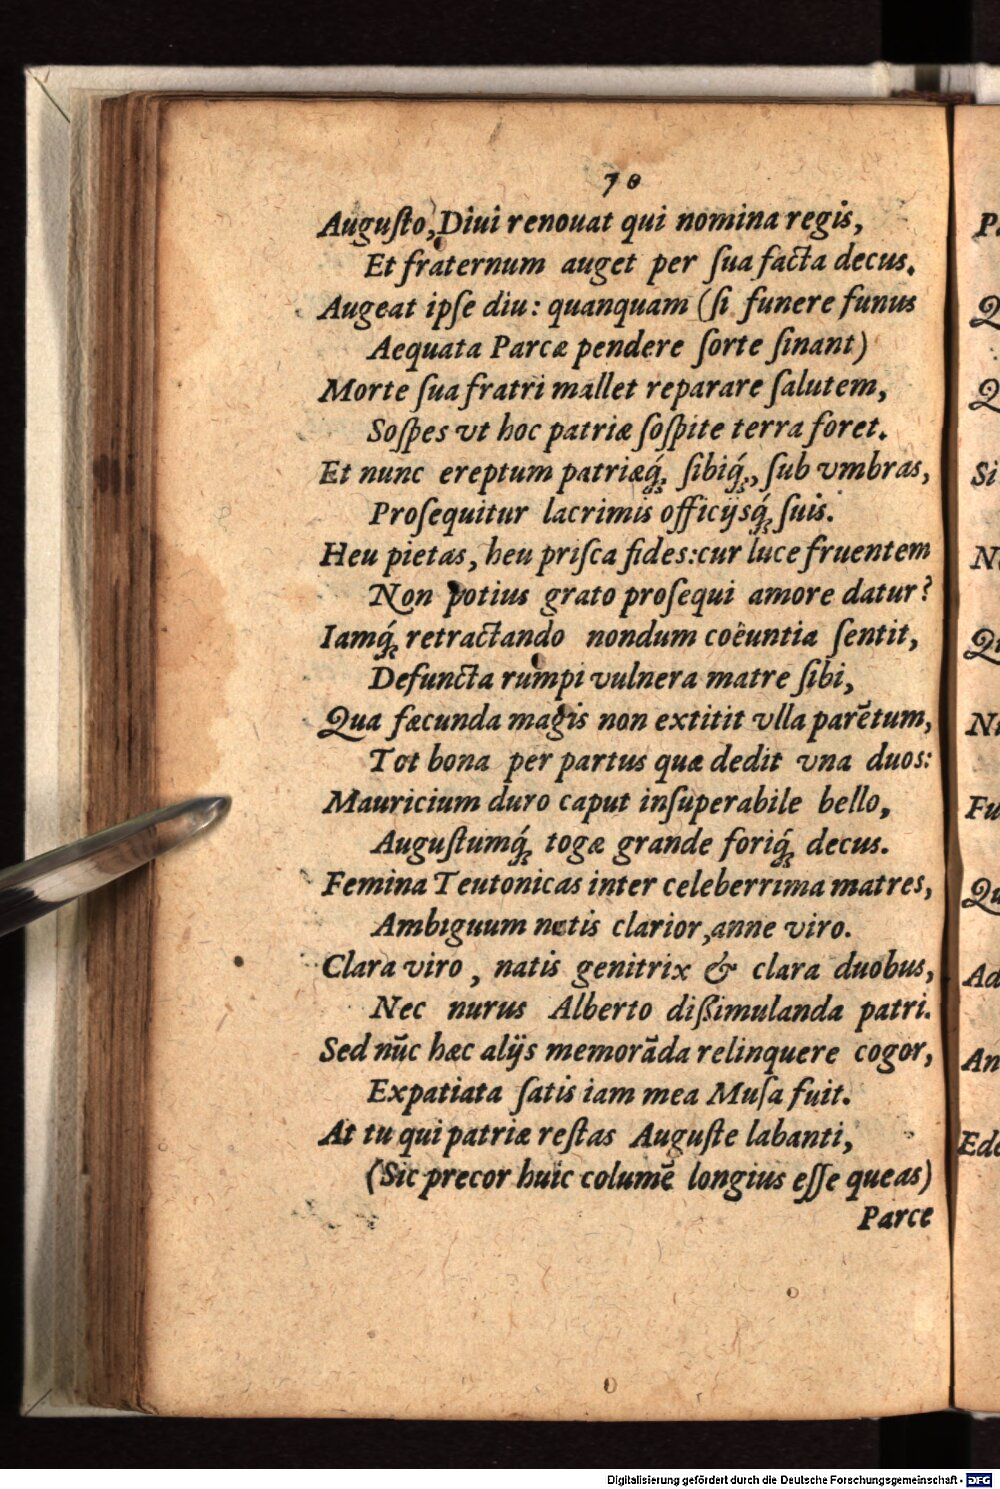 70
Auguſto, Diui renouat qui nomina regis,
Et fraternum auget per ſua facta decus.
Augeat ipſe diu: quanquam (ſi funere funus
Aequata Parcæ pendere ſorte ſinant)
Morte ſua fratri mallet reparare ſalutem,
Soſpes vt hoc patriæ ſoſpite terra foret.
Et nunc ereptum patriæq́; ſibiq́;, ſub vmbras,
Proſequitur lacrimis officijsq́; ſuis.
Heu pietas, heu priſca fides: cur luce fruentem
Non potius grato proſequi amore datur?
Iamq́; retractando nondum coëuntia ſentit,
Defuncta rumpi vulnera matre ſibi,
Qua fæcunda magis non extitit vlla parẽtum,
Tot bona per partus quæ dedit vna duos:
Mauricium duro caput inſuperabile bello,
Auguſtumq́; togæ grande foriq́; decus.
Femina Teutonicas inter celeberrima matres,
Ambiguum natis clarior, anne viro.
Clara viro, natis genitrix & clara duobus,
Nec nurus Alberto dißimulanda patri.
Sed nũc hæc alijs memorãda relinquere cogor,
Expatiata ſatis iam mea Muſa fuit.
At tu qui patriæ reſtas Auguſte labanti,
(Sic precor huic columẽ longius eſſe queas)
Parce
P
Q
Q
Si
N
Qu
N
Fu
Qu
Ad
An
Edo
Digitalisierung gefördert durch die Deutsche Forschungsgemeinschaft - DFG